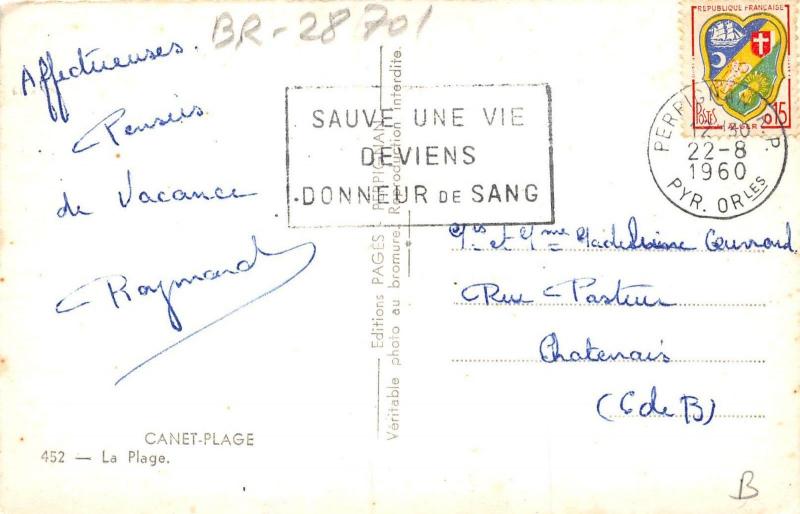 BR-28701
Affectueuses.
Pensées
de Vacance
Raymond
CANET-PLAGE
452 — La Plage.
Editions PAGÈS - PERPIGNAN
Véritable photo au bromure. Reproduction interdite.
SAUVE UNE VIE
DEVIENS
DONNEUR DE SANG
REPUBLIQUE FRANÇAISE
POSTES
ALGER
0,15
PERPIGNAN R.P.
22-8
1960
PYR. ORLES
et Madeleine
Rue Pasteur
Chatenais
(C de B)
B